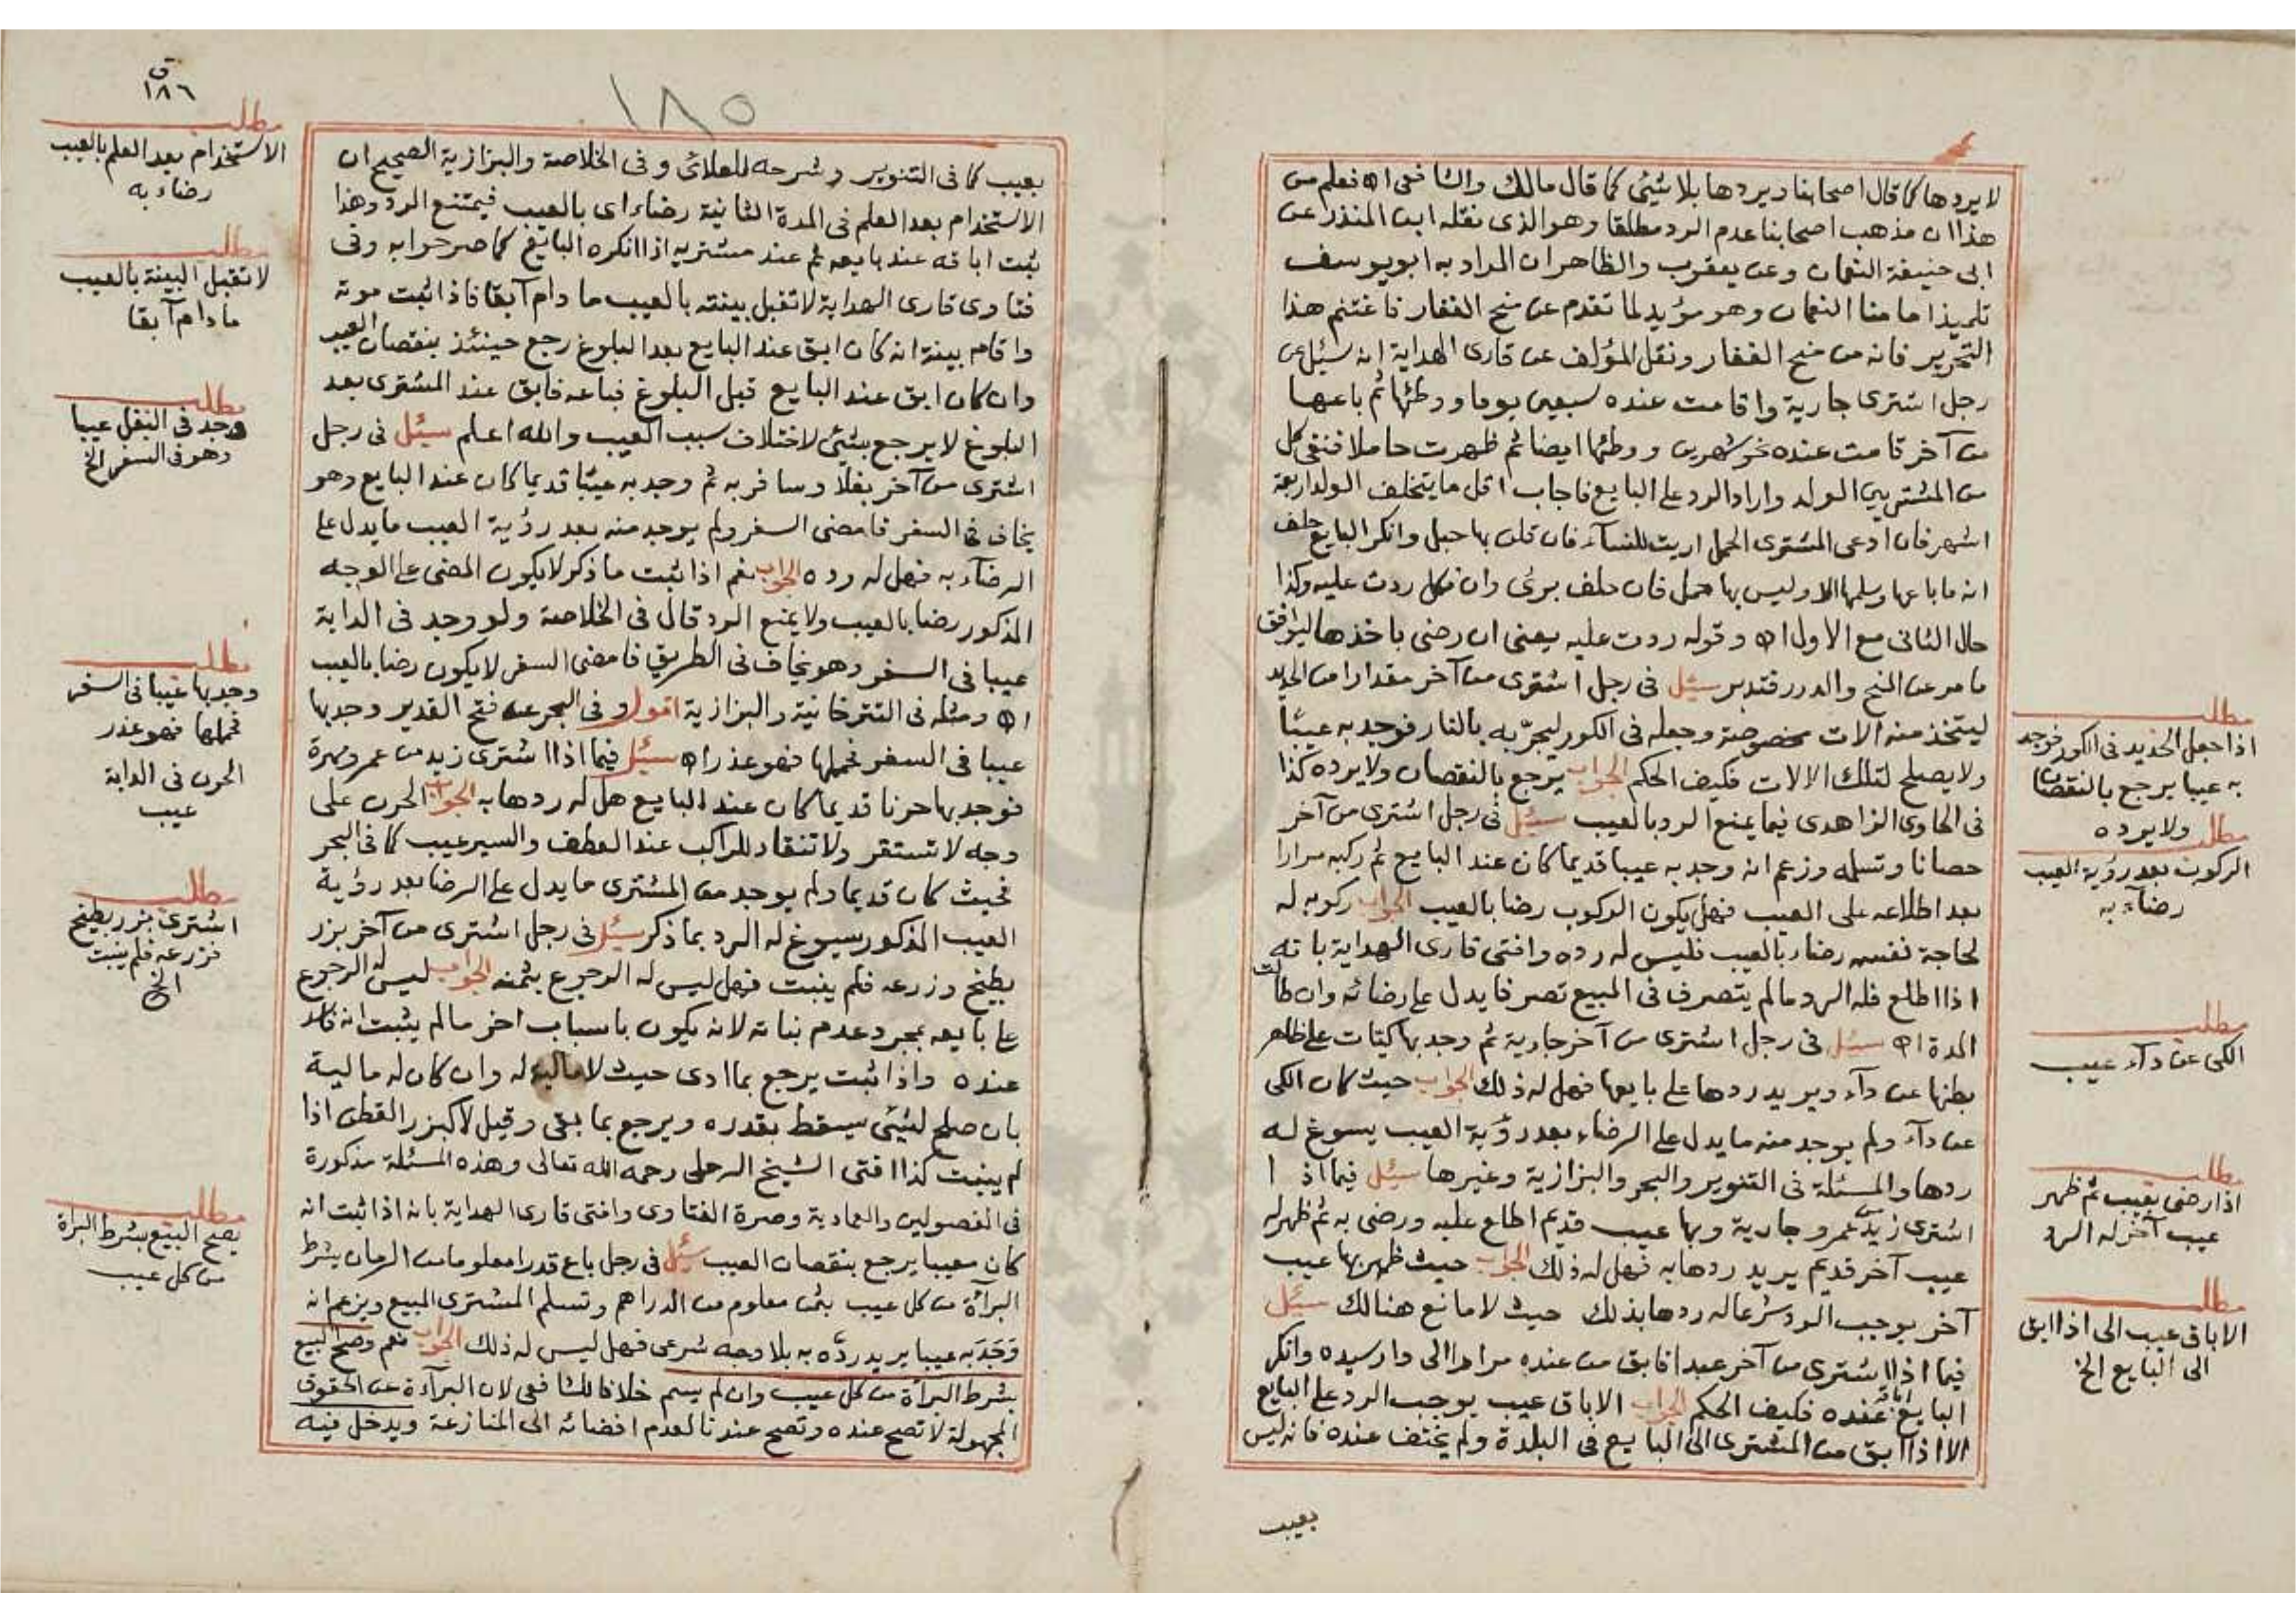 لا يردها كما قال اصحابنا ويردها بلا شيئ كما قال مالك والشافعى اه فعلم من
هذا ان مذهب اصحابنا عدم الرد مطلقا وهو الذى نقله ابن المنذر عن
ابى حنيفة النعمان وعن يعقوب والظاهر ان المراد به ابو يوسف
تلميذ امامنا النعمان وهو مؤيد لما تقدم عن منح الغفار فاغتنم هذا
التحرير فانه من منح الغفار ونقل المؤلف عن قارى الهداية انه سئل عن
رجل اشترى جارية واقامت عنده سبعين يوما ووطئها ثم باعها
من آخر قامت عنده نحو شهرين ووطئها ايضا ثم ظهرت حاملا فنفى كل
من المشتريين الولد واراد الرد على البايع فاجاب اقل ما يتخلف الولد اربعة
اشهر فان ادعى المشترى الحمل اريت للنساء فان قلن بها حبل وانكر البايع حلف
انه ما باعها وسلمها الا وليس بها حمل فان حلف برئ وان نكل ردت عليه وكذا
حال الثانى مع الاول اه وقوله ردت عليه يعنى ان رضى باخذها ليوافق
ما مر عن المنح والدرر فتدبر سئل فى رجل اشترى من آخر مقدارا من الحديد
ليتخذ منه الات مخصوصة وجعله فى الكور ليجربه بالنار فوجد به عيبا
ولا يصلح لتلك الالات فكيف الحكم الجواب يرجع بالنقصان ولا يرده كذا
فى الحاوى الزاهدى فيما يمنع الرد بالعيب سئل فى رجل اشترى من آخر
حصانا وتسلمه وزعم انه وجد به عيبا قديما كان عند البايع ثم ركبه مرارا
بعد اطلاعه على العيب فهل يكون الركوب رضا بالعيب الجواب ركوبه له
لحاجة نفسه رضاء بالعيب فليس له رده وافتى قارى الهداية بانه
اذا اطلع فله الرد ما لم يتصرف فى المبيع تصرفا يدل على رضائه وان طالت
المدة اه سئل فى رجل اشترى من آخر جارية ثم وجد بها كيات على ظاهر
بطنها عن داء ويريد ردها على بايعها فهل له ذلك الجواب حيث كان الكى
عن داء ولم يوجد منه ما يدل على الرضاء بعد رؤية العيب يسوغ له
ردها والمسئلة فى التنوير والبحر والبزازية وغيرها سئل فيما اذا
اشترى زيد من عمرو جارية وبها عيب قديم اطلع عليه ورضى به ثم ظهر له
عيب آخر قديم يريد ردها به فهل له ذلك الجواب حيث ظهر بها عيب
آخر يوجب الرد شرعا له ردها بذلك حيث لا مانع هنالك سئل
فيما اذا اشترى من آخر عبدا فابق من عنده مرارا الى دار سيده وانكر
البايع اباقه عنده فكيف الحكم الجواب الاباق عيب يوجب الرد على البايع
الا اذا ابق من المشترى الى البايع فى البلدة ولم يختف عنده فانه ليس
بعيب
مطلب
اذا جعل الحديد فى الكور فوجد
به عيبا يرجع بالنقصان
ولا يرده
مطلب
الركوب بعد رؤية العيب
رضاء به
مطلب
الكى عن داء عيب
مطلب
اذا رضى بعيب ثم ظهر
عيب آخر له الرد
مطلب
الاباق عيب الى اذا ابق
الى البايع الخ
ق
١٨٦
١٨٥
بعيب كما فى التنوير وشرحه للعلائى وفى الخلاصة والبزازية الصحيح ان
الاستخدام بعد العلم فى المدة الثانية رضاء اى بالعيب فيمتنع الرد وهذا
ثبت اباقه عند بايعه ثم عند مشتريه اذا انكره البايع كما صرحوا به وفى
فتاوى قارى الهداية لا تقبل بينته بالعيب ما دام آبقا فاذا ثبت موته
واقام بينة انه كان ابق عند البايع بعد البلوغ رجع حينئذ بنقصان العيب
وان كان ابق عند البايع قبل البلوغ فباعه فابق عند المشترى بعد
البلوغ لا يرجع بشئ لاختلاف سبب العيب والله اعلم سئل فى رجل
اشترى من آخر بغلا وسافر به ثم وجد به عيبا قديما كان عند البايع وهو
يخاف فى السفر فامضى السفر ولم يوجد منه بعد رؤية العيب ما يدل على
الرضاء به فهل له رده الجواب نعم اذا ثبت ما ذكر لا يكون المضى على الوجه
المذكور رضا بالعيب ولا يمنع الرد قال فى الخلاصة ولو وجد فى الدابة
عيبا فى السفر وهو يخاف فى الطريق فامضى السفر لا يكون رضا بالعيب
اه ومثله فى التترخانية والبزازية اقول وفى البحر عن فتح القدير وجد بها
عيبا فى السفر فحملها فهو عذر اه سئل فيما اذا اشترى زيد من عمرو مهرة
فوجد بها حرنا قديما كان عند البايع هل له ردها به الجواب الحرن على
وجه لا تستقر ولا تنقاد للراكب عند العطف والسير عيب كما فى البحر
فحيث كان قديما ولم يوجد من المشترى ما يدل على الرضا بعد رؤية
العيب المذكور يسوغ له الرد بما ذكر سئل فى رجل اشترى من آخر بزر
بطيخ وزرعه فلم ينبت فهل ليس له الرجوع بثمنه الجواب ليس له الرجوع
على بايعه بمجرد عدم نباته لانه يكون باسباب اخر ما لم يثبت انه فاسد
عنده واذا ثبت يرجع بما ادى حيث لا مالية له وان كان له مالية
بان صلح لشئ يسقط بقدره ويرجع بما بقى وقيل لا كبزر القطن اذا
لم ينبت كذا افتى الشيخ الرملى رحمه الله تعالى وهذه المسئلة مذكورة
فى الفصولين والعمادية وصرة الفتاوى وافتى قارى الهداية بانه اذا ثبت انه
كان معيبا يرجع بنقصان العيب سئل فى رجل باع قدرا معلوما من الرمان بشرط
البرأة من كل عيب بثمن معلوم من الدراهم وتسلم المشترى المبيع ويزعم انه
وجد به عيبا يريد رده به بلا وجه شرعى فهل ليس له ذلك الجواب نعم وصح البيع
بشرط البرأة من كل عيب وان لم يسم خلافا للشافعى لان البرآءة عن الحقوق
المجهولة لا تصح عنده وتصح عندنا لعدم افضائه الى المنازعة ويدخل فيه
مطلب
الاستخدام بعد العلم بالعيب
رضاء به
مطلب
لا تقبل البينة بالعيب
ما دام آبقا
مطلب
وجد فى البغل عيبا
وهو فى السفر الخ
مطلب
وجد بها عيبا فى السفر
فحملها فهو عذر
الحرن فى الدابة
عيب
مطلب
اشترى بزر بطيخ
فزرعه فلم ينبت
الخ
مطلب
يصح البيع بشرط البرأة
من كل عيب